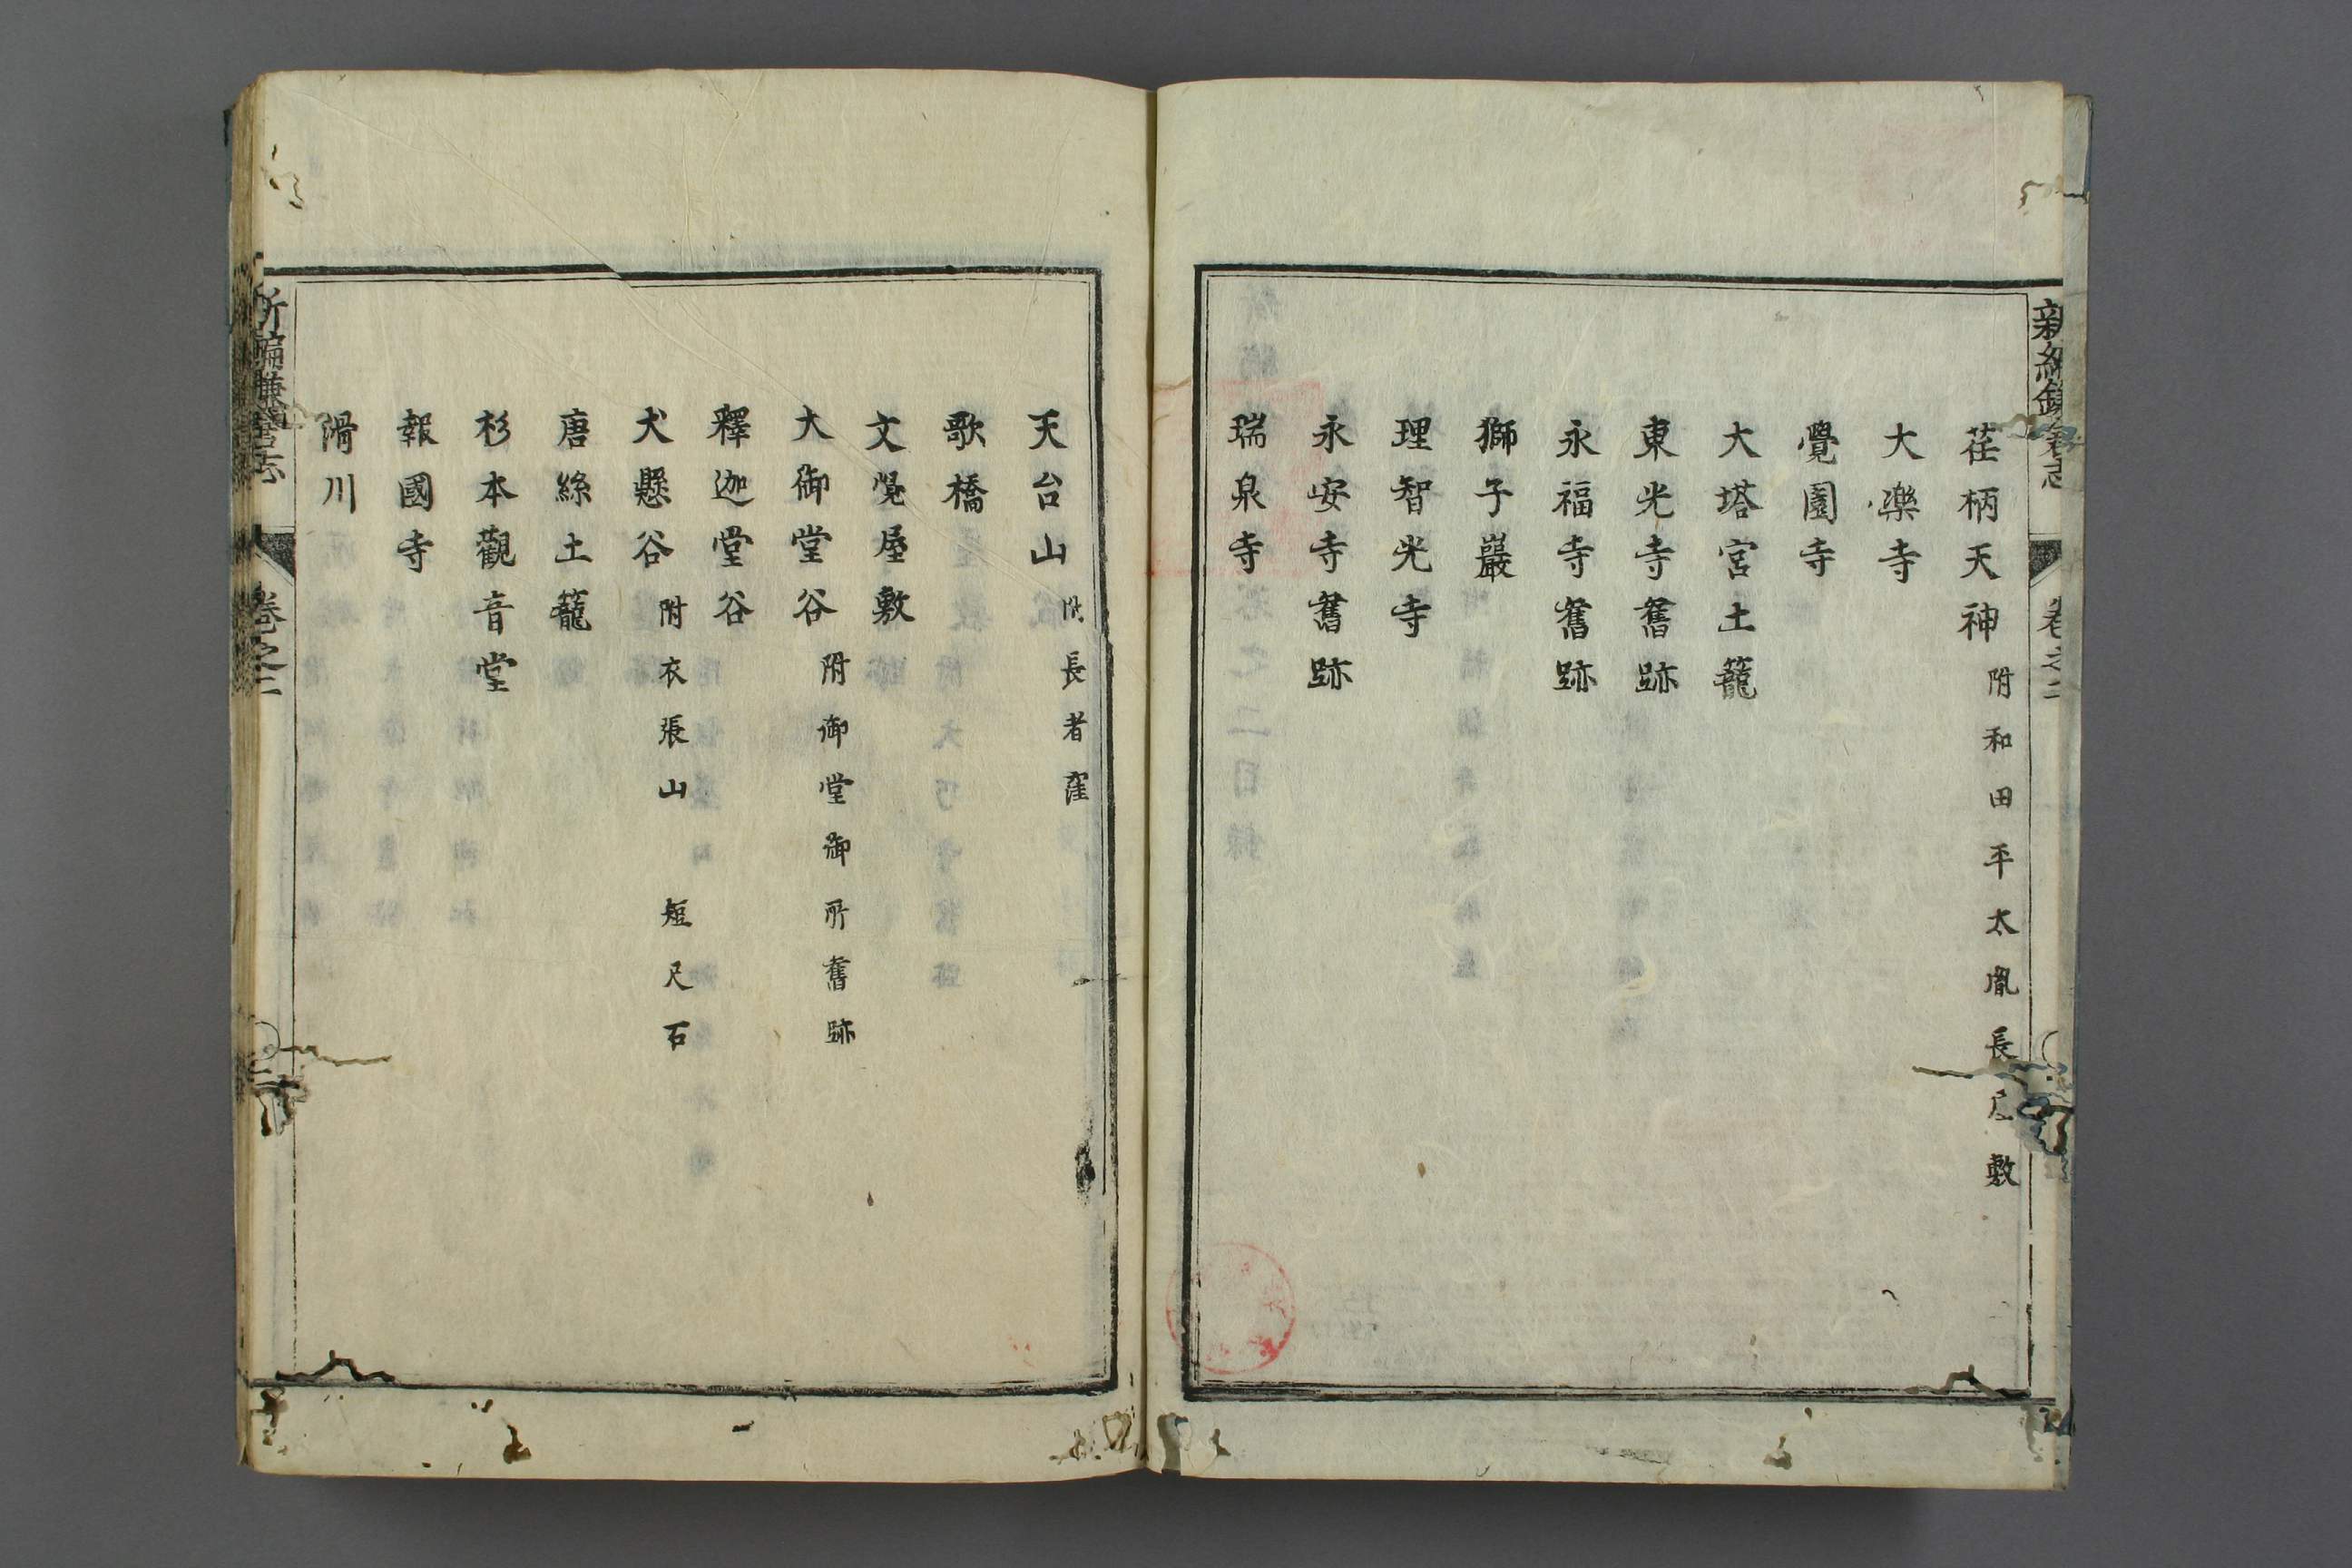 新編鎌倉志 卷之二
荏柄天神 附和田平太胤長屋敷
大樂寺
覺園寺
大塔宮土籠
東光寺舊跡
永福寺舊跡
獅子巖
理智光寺
永安寺舊跡
瑞泉寺
天台山 附長者窪
歌橋
文覺屋敷
大御堂谷 附御堂御所舊跡
釋迦堂谷
犬懸谷 附衣張山 短尺石
唐絲土籠
杉本觀音堂
報國寺
滑川
新編鎌倉志 卷之二